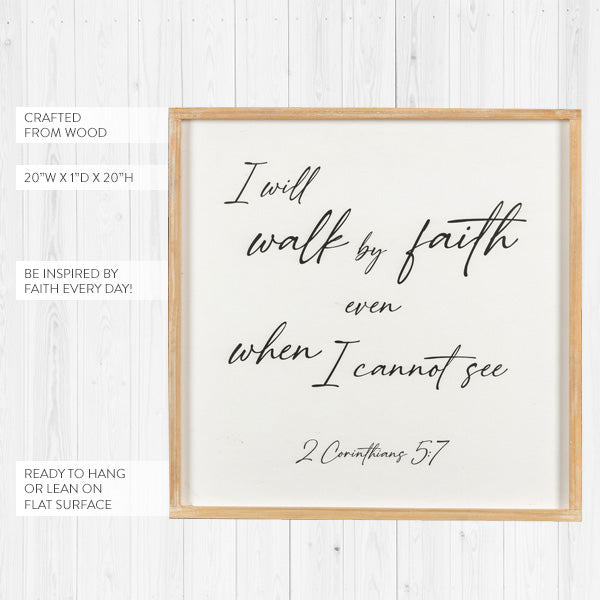 CRAFTED
FROM WOOD
20"W X 1"D X 20"H
BE INSPIRED BY
FAITH EVERY DAY!
READY TO HANG
OR LEAN ON
FLAT SURFACE
I will
walk by faith
even
when I cannot see
2 Corinthians 5:7